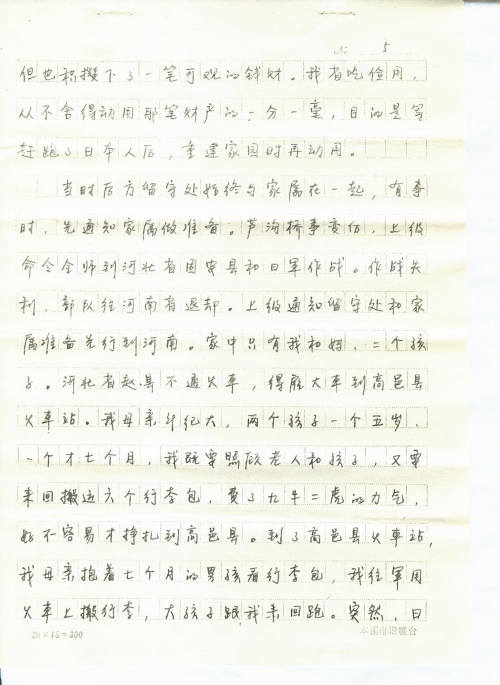 № 5
但也积攒下了一笔可观的钱财。我省吃俭用，
从不舍得动用那笔财产的一分一毫，目的是等
赶跑了日本人后，重建家园时再动用。
当时后方留守处始终与家属在一起，有事
时，先通知家属做准备。芦沟桥事变后，上级
命令全师到河北省固安县和日军作战。作战失
利，部队往河南省退却。上级通知留守处和家
属准备先行到河南。家中只有我和妈、二个孩
子。河北省赵县不通火车，得雇大车到高邑县
火车站。我母亲年纪大，两个孩子一个五岁、
一个才七个月，我既要照顾老人和孩子，又要
来回搬运六个行李包，费了九牛二虎的力气，
好不容易才挣扎到高邑县。到了高邑县火车站，
我母亲抱着七个月的男孩看行李包，我往军用
火车上搬行李，大孩子跟我来回跑。突然，日
20×15=300